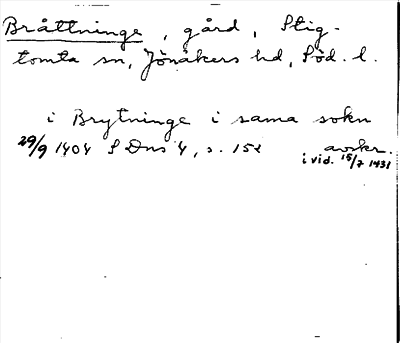 Bråttninge, gård, Stig-
tomta sn, Jönåkers hd, Söd. l.
i Brytninge i sama sokn
29/9 1404 SDns 4, s. 152 avskr.
i vid. 15/7 1431